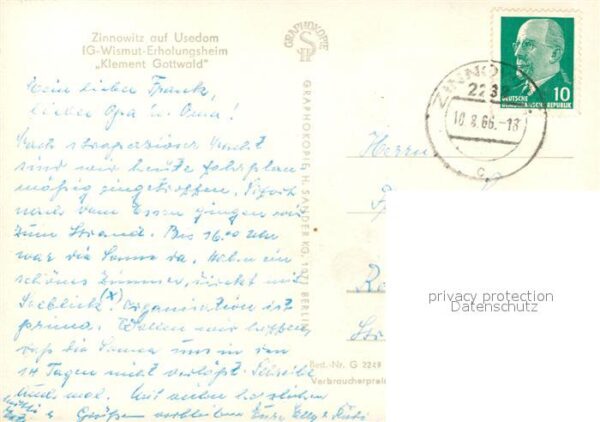 Zinnowitz auf Usedom
IG-Wismut-Erholungsheim
„Klement Gottwald"
Mein lieber Frank,
lieber Opa u. Oma!
Nach strapaziöser Nacht
sind wir heute fahrplan
mäßig eingetroffen. Sofort
nach dem Essen gingen wir
zum Strand. Bis 16.00 Uhr
war die Sonne da. Haben ein
schönes Zimmer, direkt mit
Seeblick (x). Organisation ist
prima. Wollen wir hoffen,
daß die Sonne uns in den
14 Tagen nicht verläßt. Schreibe
auch mal. Mit vielen herzlichen
Grüßen verbleiben Eure Elly u.
GRAPHOKOPIE
GRAPHOKOPIE H. SANDER KG, 1071 BERLIN
ZINNO
223
10.8.66.-18
c
DEUTSCHE
DEMOKRATISCHE REPUBLIK
10
Herrn
privacy protection
Datenschutz
Best.-Nr. G 2249
Verbraucherpreis